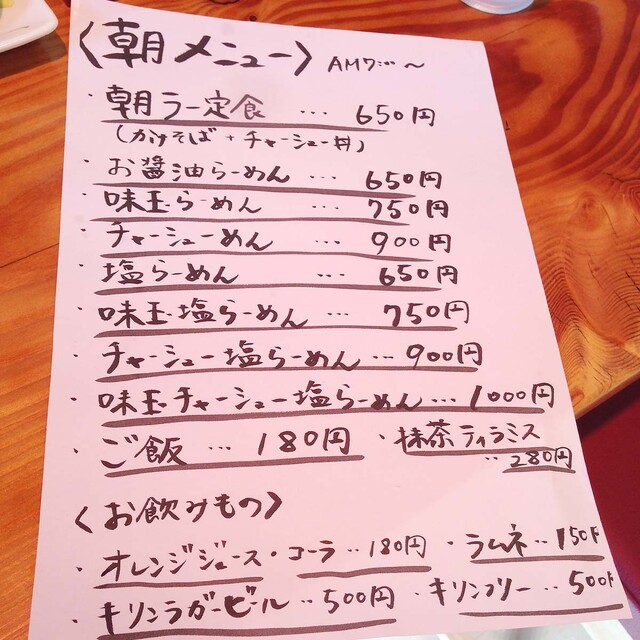 〈朝メニュー〉 AM7:00〜
・朝ラー定食 … 650円
(かけそば + チャーシュー丼)
・お醤油らーめん … 650円
味玉らーめん … 750円
・チャーシューめん … 900円
・塩らーめん … 650円
・味玉塩らーめん … 750円
・チャーシュー塩らーめん … 900円
・味玉チャーシュー塩らーめん … 1000円
・ご飯 … 180円
・抹茶ティラミス
‥ 280円
〈お飲みもの〉
・オレンジジュース・コーラ ‥ 180円
・ラムネ ‥ 150円
・キリンラガービール ‥ 500円
・キリンフリー ‥ 500円